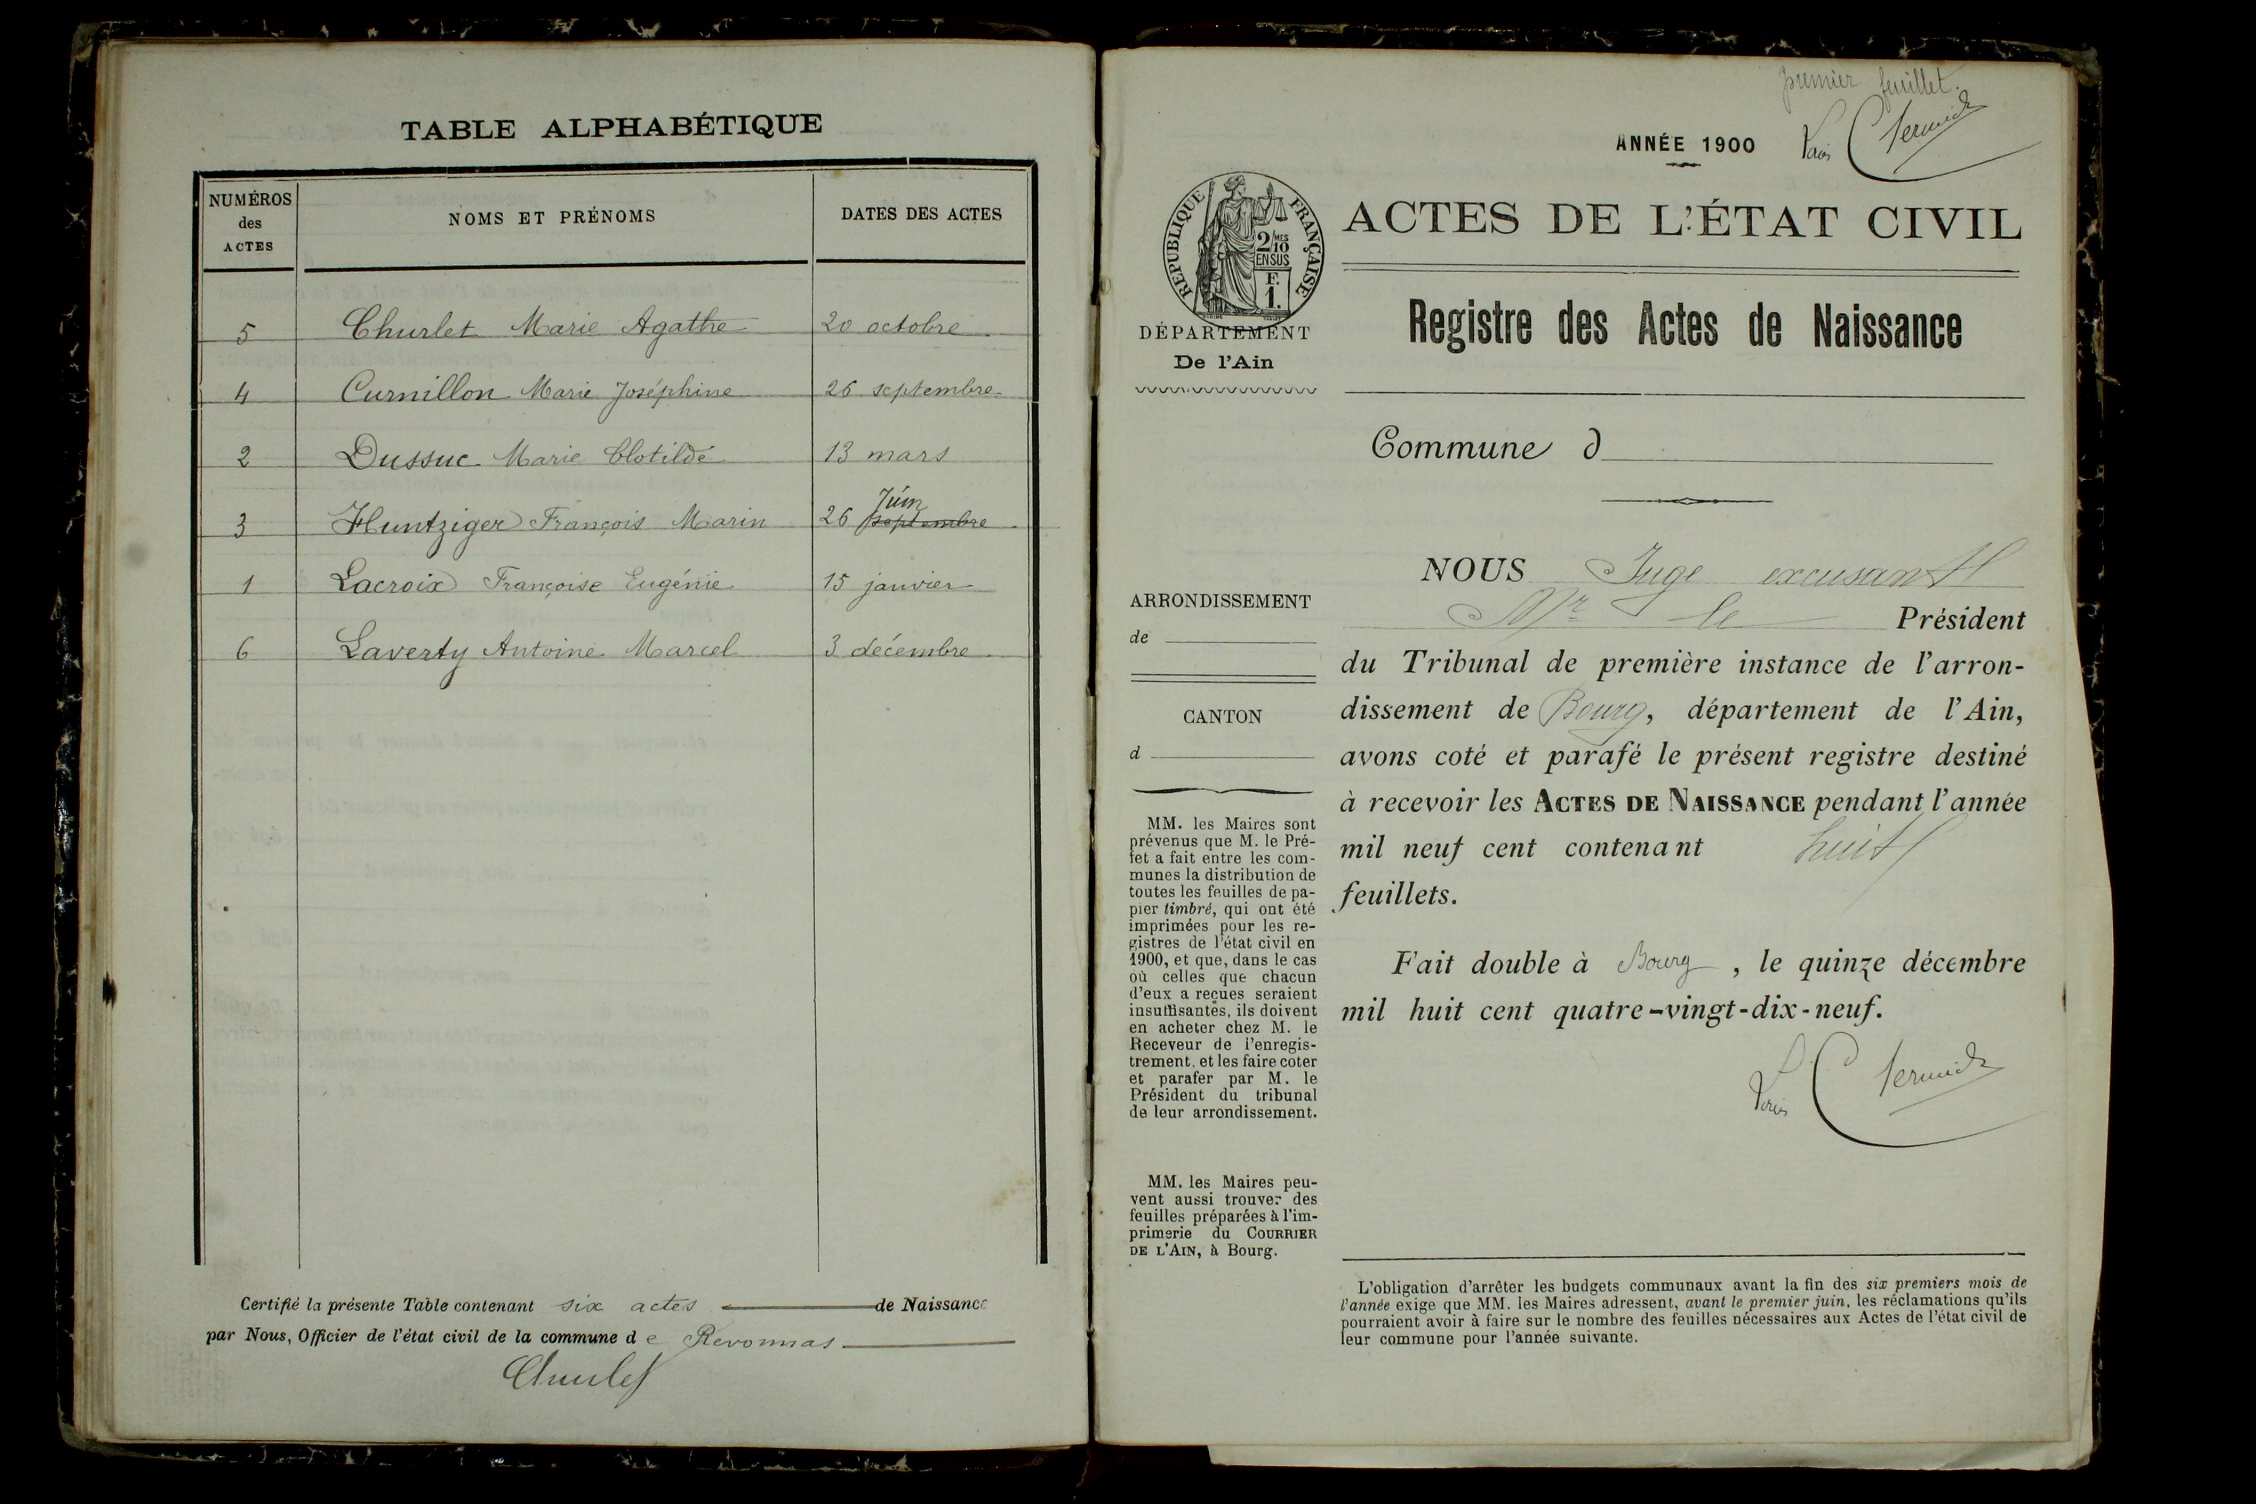 TABLE ALPHABÉTIQUE
NUMÉROS des ACTES
NOMS ET PRÉNOMS
DATES DES ACTES
5 Churlet Marie Agathe 20 octobre
4 Curnillon Marie Joséphine 26 septembre
2 Dussuc Marie Clotilde 13 mars
Juin
3 Huntziger François Marin 26 septembre
1 Lacroix Françoise Eugénie 15 janvier
6 Laverty Antoine Marcel 3 décembre
Certifié la présente Table contenant six actes de Naissance
par Nous, Officier de l'état civil de la commune de Revonnas
Churlet
premier feuillet.
ANNÉE 1900
RÉPUBLIQUE FRANÇAISE
2/10 MES
EN SUS
F.
1.
DÉPARTEMENT
De l'Ain
ACTES DE L'ÉTAT CIVIL
Registre des Actes de Naissance
Commune d
ARRONDISSEMENT
de
CANTON
d
MM. les Maires sont
prévenus que M. le Pré-
fet a fait entre les com-
munes la distribution de
toutes les feuilles de pa-
pier timbré, qui ont été
imprimées pour les re-
gistres de l'état civil en
1900, et que, dans le cas
où celles que chacun
d'eux a reçues seraient
insuffisantes, ils doivent
en acheter chez M. le
Receveur de l'enregis-
trement, et les faire coter
et parafer par M. le
Président du tribunal
de leur arrondissement.
MM. les Maires peu-
vent aussi trouver des
feuilles préparées à l'im-
primerie du COURRIER
DE L'AIN, à Bourg.
NOUS Juge excusant
Mr le Président
du Tribunal de première instance de l'arron-
dissement de Bourg, département de l'Ain,
avons coté et parafé le présent registre destiné
à recevoir les ACTES DE NAISSANCE pendant l'année
mil neuf cent contenant huit
feuillets.
Fait double à Bourg, le quinze décembre
mil huit cent quatre-vingt-dix-neuf.
L'obligation d'arrêter les budgets communaux avant la fin des six premiers mois de
l'année exige que MM. les Maires adressent, avant le premier juin, les réclamations qu'ils
pourraient avoir à faire sur le nombre des feuilles nécessaires aux Actes de l'état civil de
leur commune pour l'année suivante.